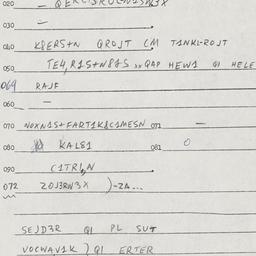 020 —
030 —
040 K8ERS+N QROJT CM T1NKL-ROJT
050 TE4,R1S+N8+S » QAP HEW1 QI HELE
069 RAJF
060 —
070 40XN1S+FART1K8C1MESN 071 —
080 KAL81 081 0
090 C1TRLN
072 ZOJ3RN3X )-ZA...
SEJD3R QI PL SUT
VOCWAV1K ) QI ERTER